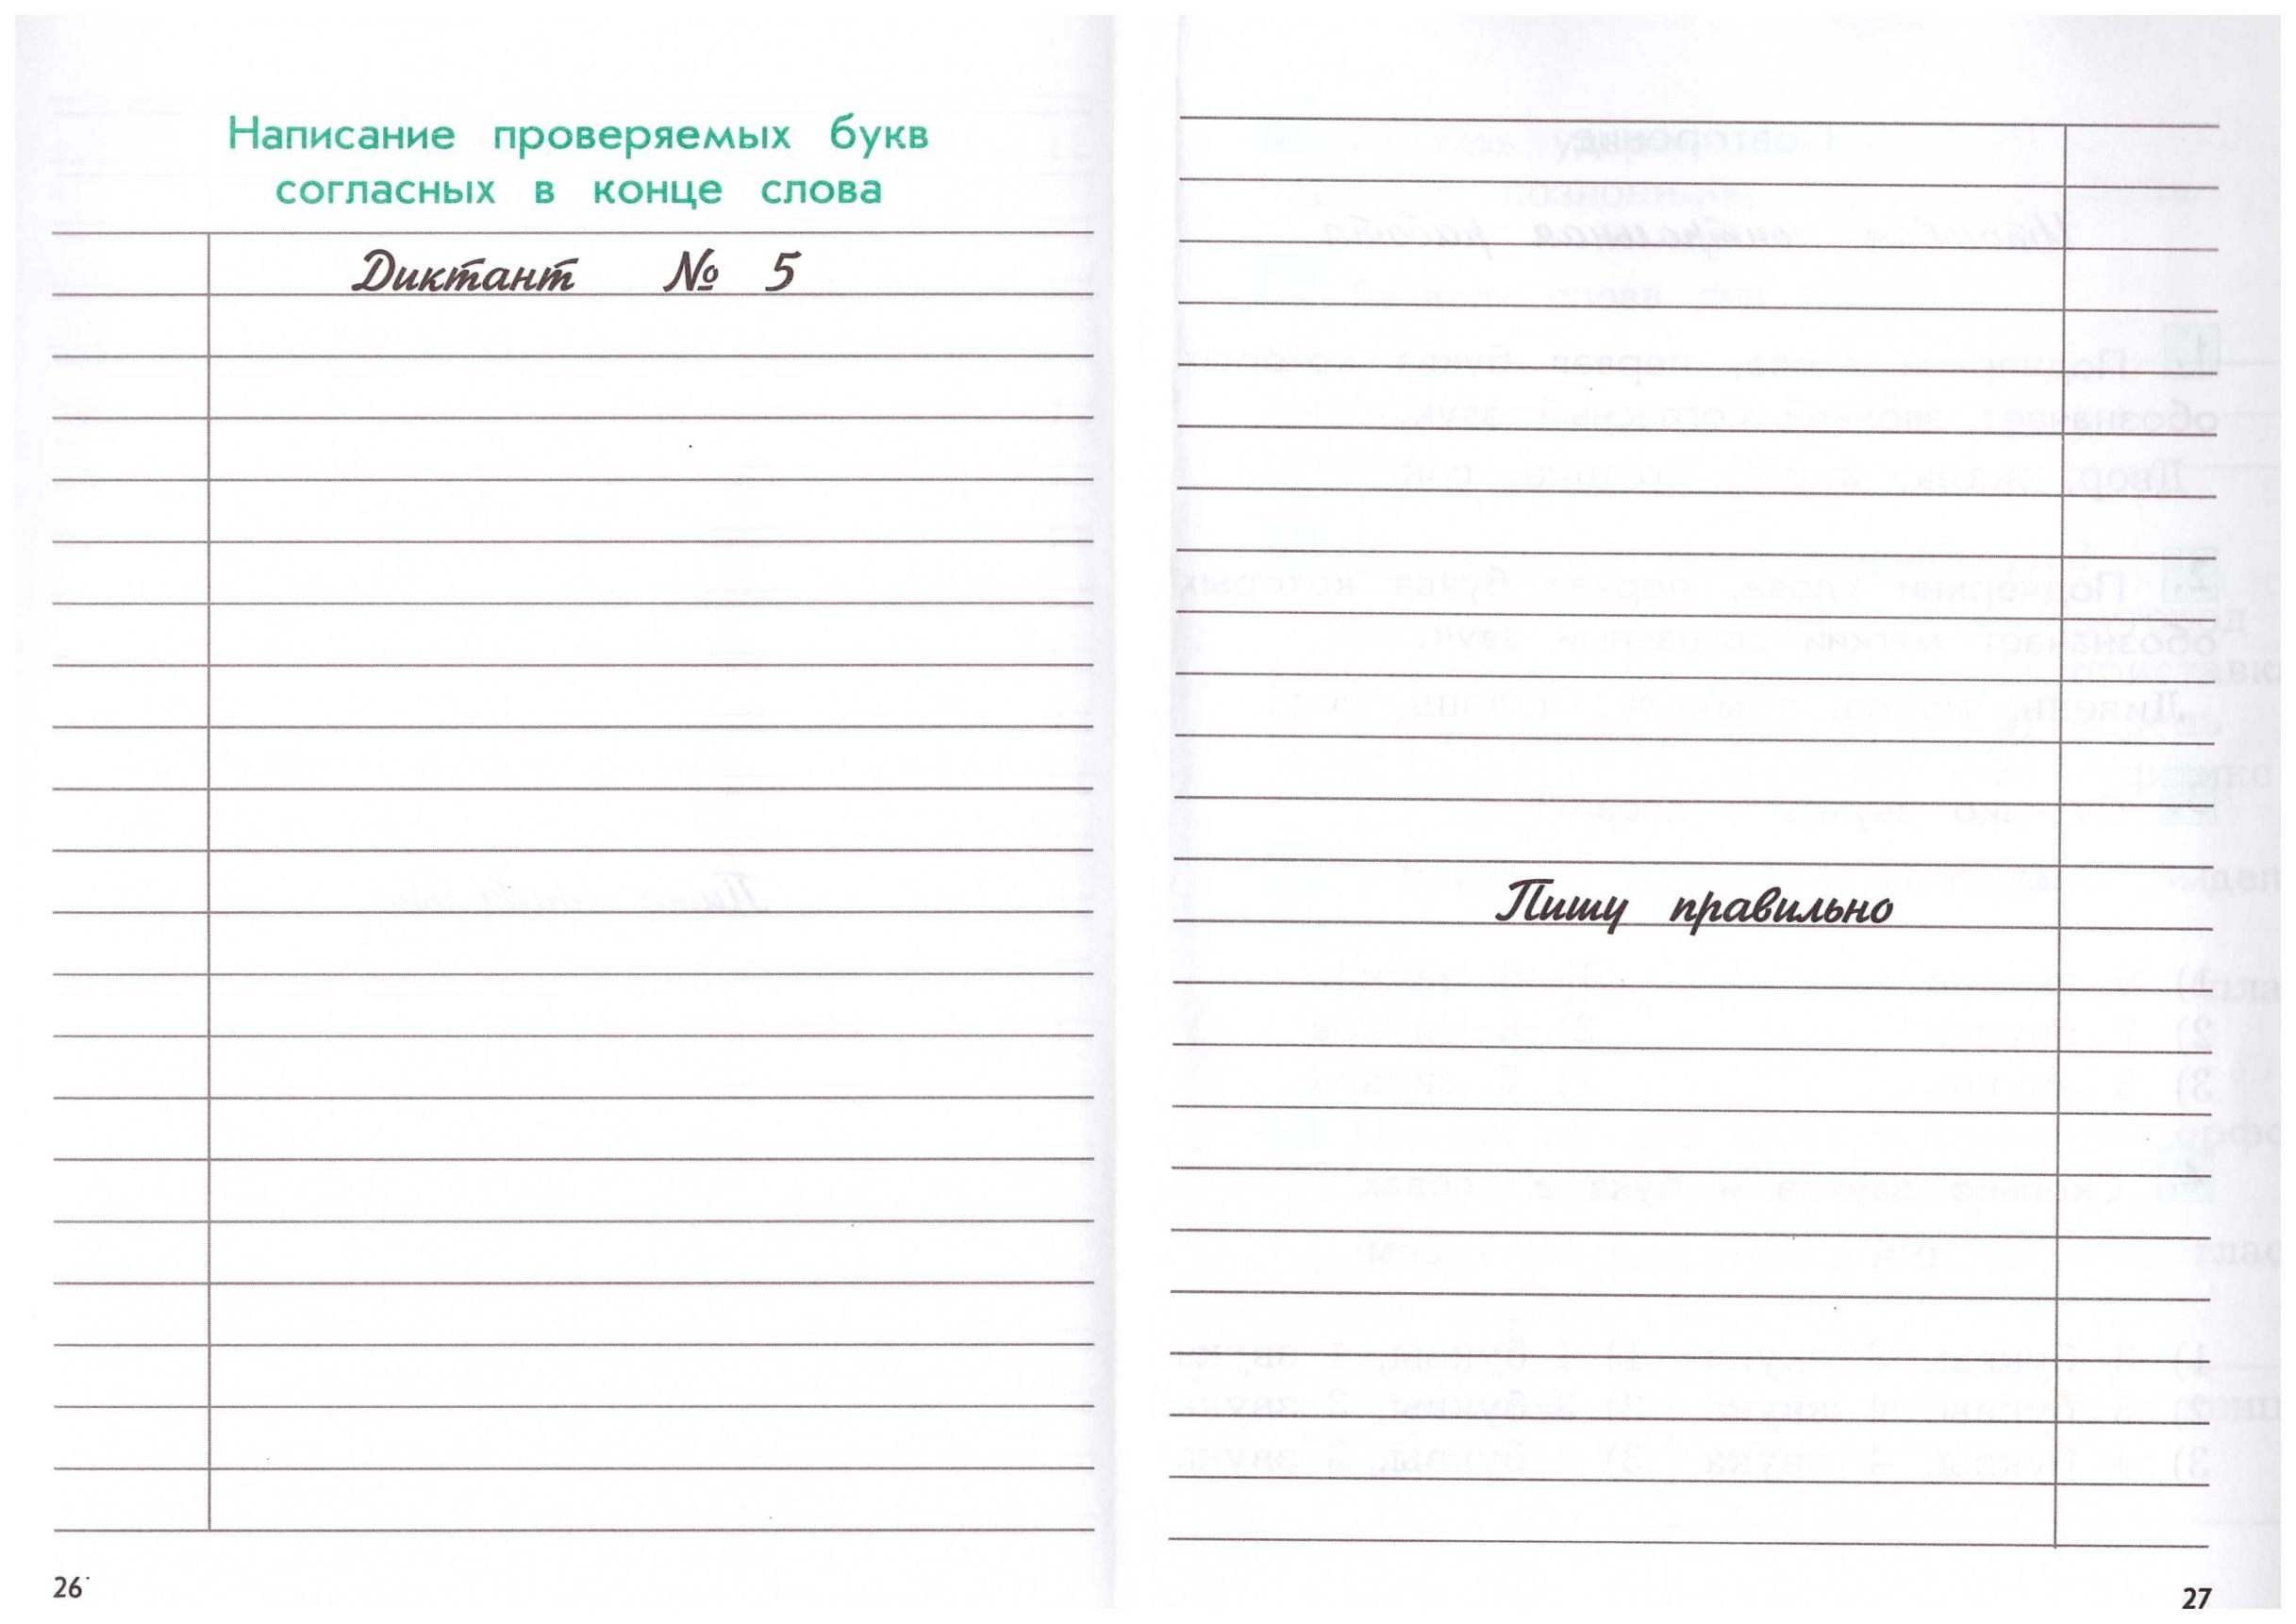 Написание проверяемых букв
согласных в конце слова
Диктант № 5
26
Пишу правильно
27